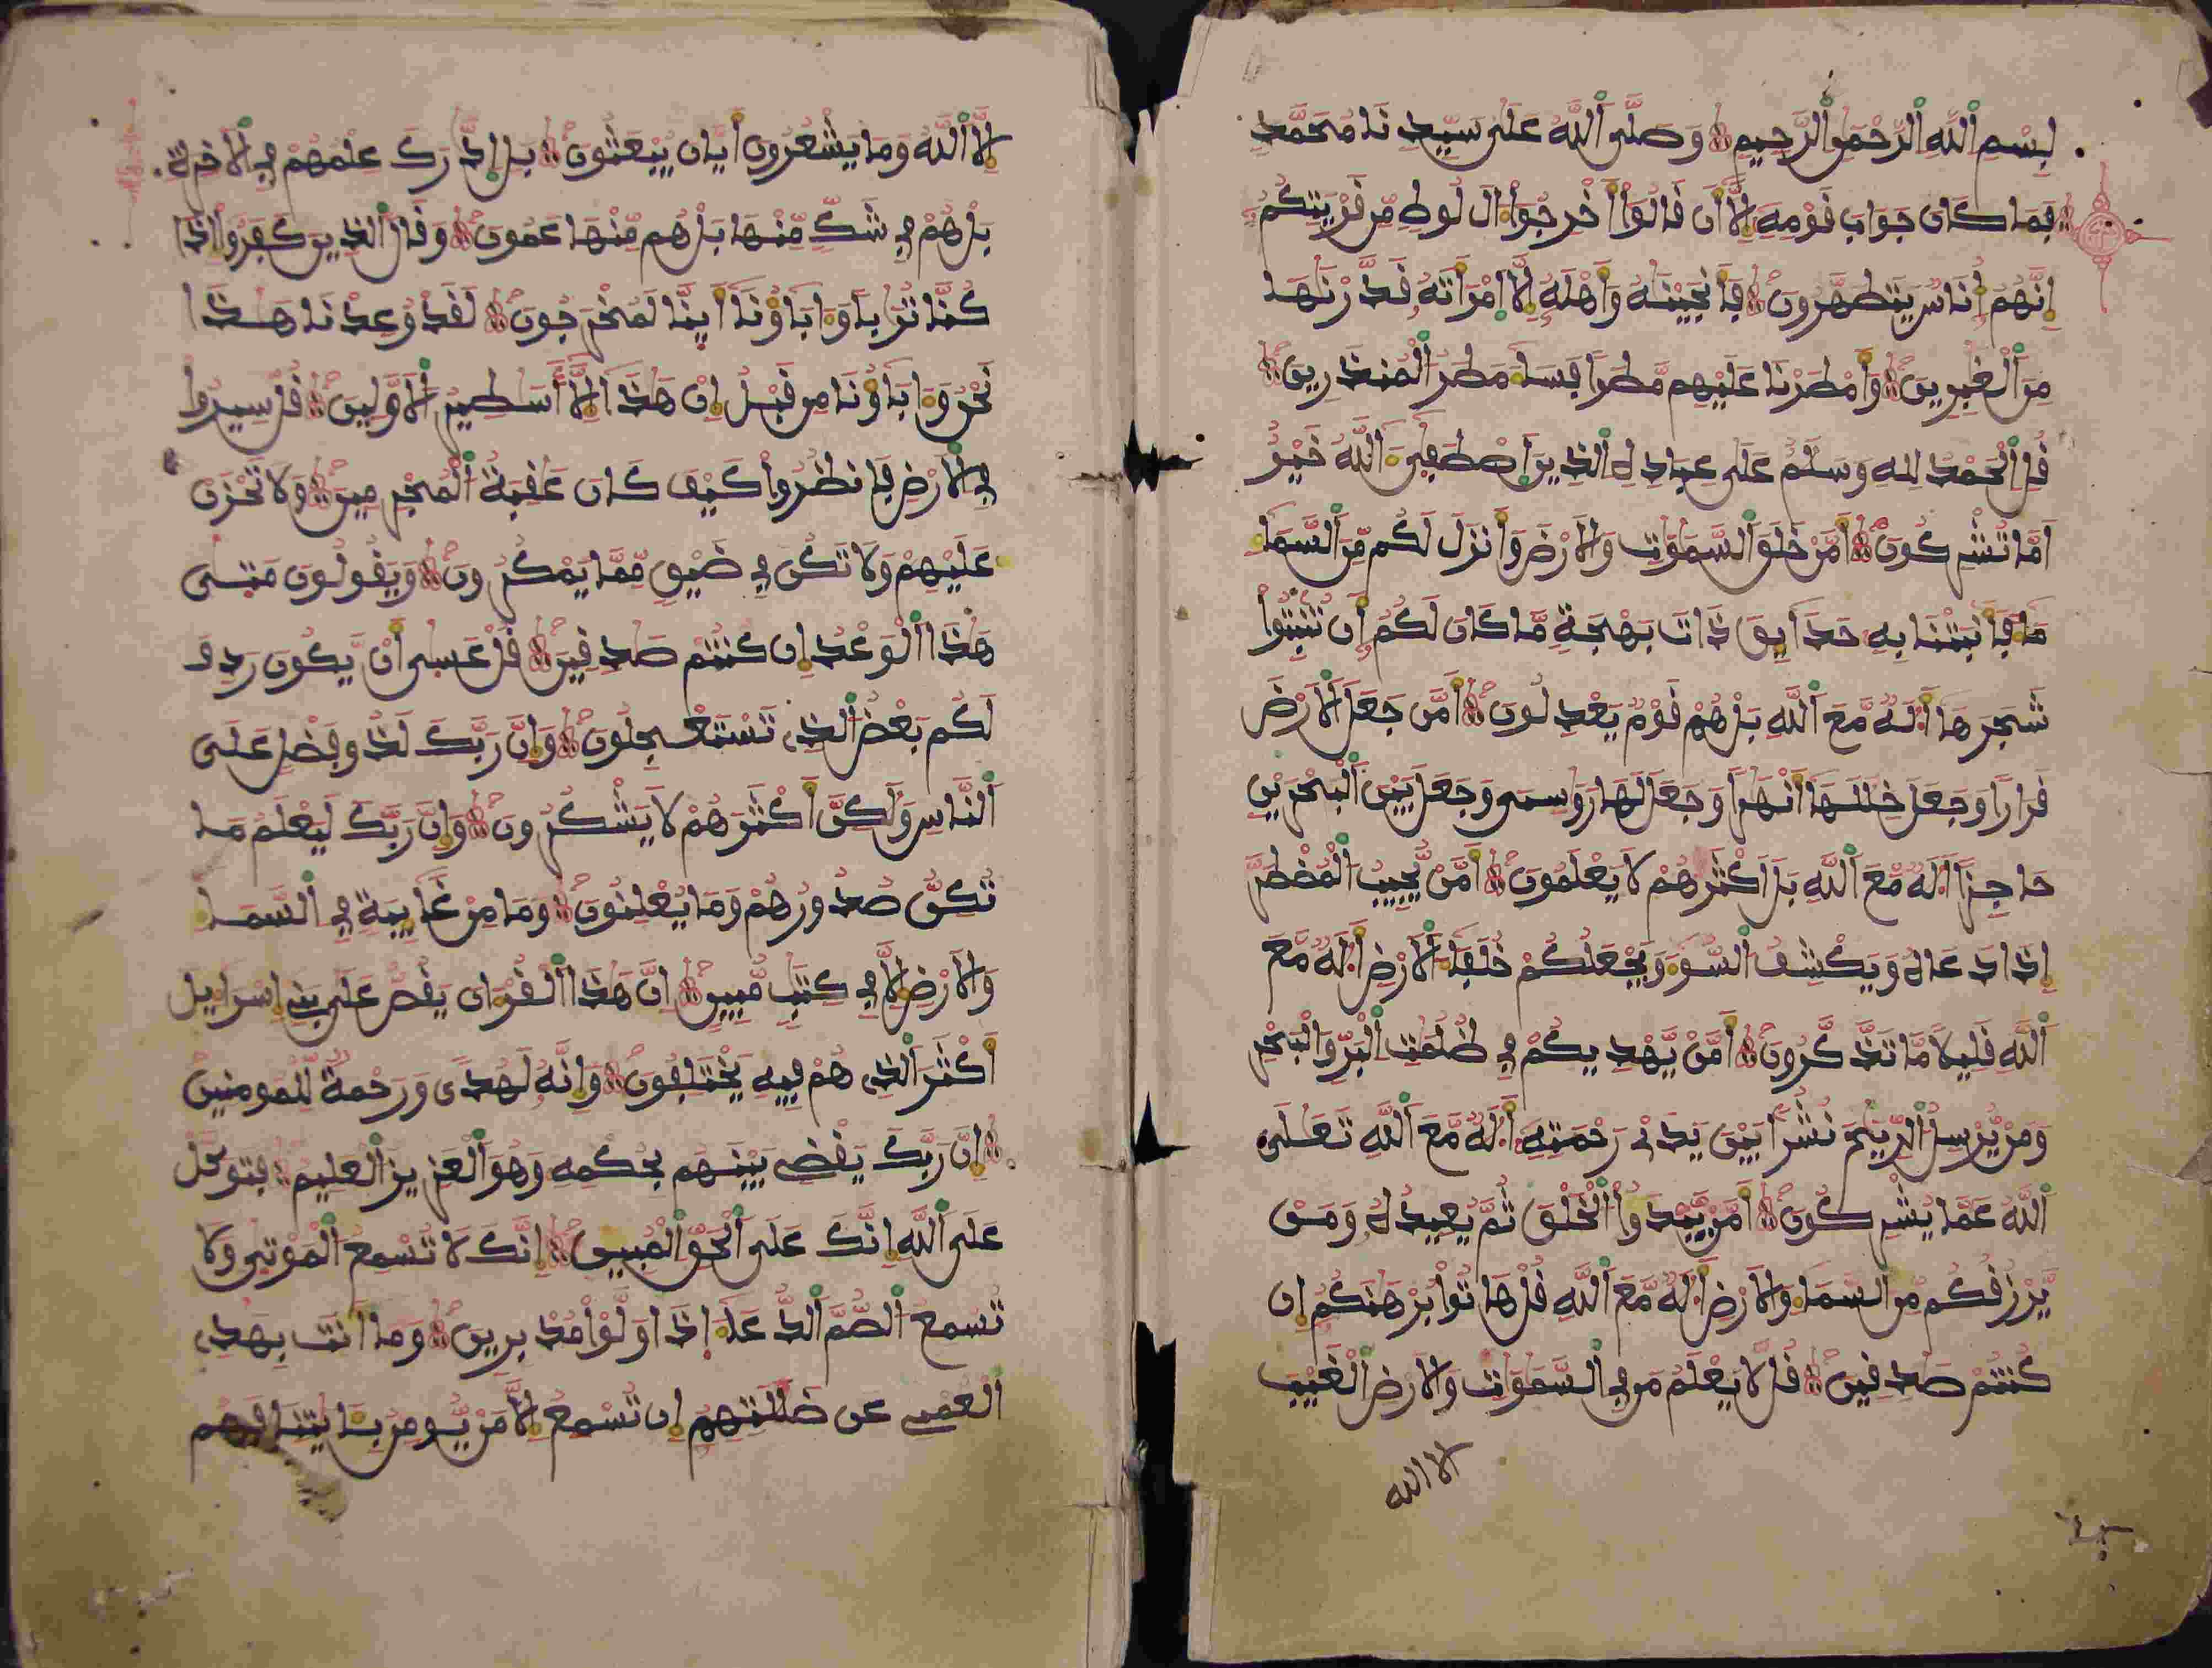 بِسْمِ اللَّهِ الرَّحْمَنِ الرَّحِيمِ وَصَلَّى اللَّهُ عَلَى سَيِّدِنَا مُحَمَّد
فَمَا كَانَ جَوَابَ قَوْمِهِ إِلَّا أَن قَالُوا أَخْرِجُوا ءَالَ لُوطٍ مِّن قَرْيَتِكُمُ
إِنَّهُمُ أُنَاسٌ يَتَطَهَّرُونَ فَأَنجَيْنَهُ وَأَهْلَهُ إِلَّا امْرَأَتَهُ قَدَّرْنَهَا
مِنَ الْغَبِرِينَ وَأَمْطَرْنَا عَلَيْهِم مَّطَرًا فَسَاءَ مَطَرُ الْمُنذَرِينَ
قُلِ الْحَمْدُ لِلهِ وَسَلَمٌ عَلَى عِبَادِهِ الذِينَ اصْطَفَى ءَاللَّهُ خَيْرٌ
أَمَّا تُشْرِكُونَ أَمَّنْ خَلَقَ السَّمَوَتِ وَالْأَرْضَ وَأَنزَلَ لَكُم مِّنَ السَّمَاءِ
مَاءً فَأَنبَتْنَا بِهِ حَدَائِقَ ذَاتَ بَهْجَةٍ مَّا كَانَ لَكُمُ أَن تُنبِتُوا
شَجَرَهَا أَ۟لَهٌ مَّعَ اللَّهِ بَلْ هُمْ قَوْمٌ يَعْدِلُونَ أَمَّن جَعَلَ الْأَرْضَ
قَرَارًا وَجَعَلَ خِلَلَهَا أَنْهَرًا وَجَعَلَ لَهَا رَوَسِيَ وَجَعَلَ بَيْنَ الْبَحْرَيْنِ
حَاجِزًا أَ۟لَهٌ مَّعَ اللَّهِ بَلَ اَكْثَرُهُمْ لَا يَعْلَمُونَ أَمَّنْ يُّجِيبُ الْمُضْطَرَّ
إِذَا دَعَاهُ وَيَكْشِفُ السُّوءَ وَيَجْعَلُكُمْ خُلَفَاءَ الْأَرْضِ أَ۟لَهٌ مَّعَ
اللَّهِ قَلِيلًا مَّا تَذَّكَّرُونَ أَمَّنْ يَّهْدِيكُمْ فِي ظُلُمَتِ الْبَرِّ وَالْبَحْرِ
وَمَنْ يُّرْسِلُ الرِّيَحَ نُشُرًا بَيْنَ يَدَيْ رَحْمَتِهِ أَ۟لَهٌ مَّعَ اللَّهِ تَعَلَى
اللَّهُ عَمَّا يُشْرِكُونَ أَمَّنْ يَّبْدَؤُا الْخَلْقَ ثُمَّ يُعِيدُهُ وَمَنْ
يَّرْزُقُكُم مِّنَ السَّمَاءِ وَالْأَرْضِ أَ۟لَهٌ مَّعَ اللَّهِ قُلْ هَاتُوا بُرْهَنَكُمُ إِن
كُنتُمْ صَدِقِينَ قُل لَّا يَعْلَمُ مَن فِي السَّمَوَتِ وَالْأَرْضِ الْغَيْبَ
الا الله
إِلَّا اللَّهُ وَمَا يَشْعُرُونَ أَيَّانَ يُبْعَثُونَ بَلِ ادَّرَكَ عِلْمُهُمْ فِي الْأَخِرَةِ
بَلْ هُمْ فِي شَكٍّ مِّنْهَا بَلْ هُم مِّنْهَا عَمُونَ وَقَالَ الذِينَ كَفَرُوا إِذَا
كُنَّا تُرَبًا وَءَابَاؤُنَا أَئِنَّا لَمُخْرَجُونَ لَقَدْ وُعِدْنَا هَذَا
نَحْنُ وَءَابَاؤُنَا مِن قَبْلُ إِنْ هَذَا إِلَّا أَسَطِيرُ الْأَوَّلِينَ قُلْ سِيرُوا
فِي الْأَرْضِ فَانظُرُوا كَيْفَ كَانَ عَقِبَةُ الْمُجْرِمِينَ وَلَا تَحْزَنْ
عَلَيْهِمْ وَلَا تَكُن فِي ضَيْقٍ مِّمَّا يَمْكُرُونَ وَيَقُولُونَ مَتَى
هَذَا الْوَعْدُ إِن كُنتُمْ صَدِقِينَ قُلْ عَسَى أَنْ يَّكُونَ رَدِفَ
لَكُم بَعْضُ الذِي تَسْتَعْجِلُونَ وَإِنَّ رَبَّكَ لَذُو فَضْلٍ عَلَى
النَّاسِ وَلَكِنَّ أَكْثَرَهُمْ لَا يَشْكُرُونَ وَإِنَّ رَبَّكَ لَيَعْلَمُ مَا
تُكِنُّ صُدُورُهُمْ وَمَا يُعْلِنُونَ وَمَا مِنْ غَائِبَةٍ فِي السَّمَاءِ
وَالْأَرْضِ إِلَّا فِي كِتَبٍ مُّبِينٍ إِنَّ هَذَا الْقُرْءَانَ يَقُصُّ عَلَى بَنِي إِسْرَاءِيلَ
أَكْثَرَ الذِي هُمْ فِيهِ يَخْتَلِفُونَ وَإِنَّهُ لَهُدًى وَرَحْمَةٌ لِّلْمُومِنِينَ
إِنَّ رَبَّكَ يَقْضِي بَيْنَهُم بِحُكْمِهِ وَهُوَ الْعَزِيزُ الْعَلِيمُ فَتَوَكَّلْ
عَلَى اللَّهِ إِنَّكَ عَلَى الْحَقِّ الْمُبِينِ إِنَّكَ لَا تُسْمِعُ الْمَوْتَى وَلَا
تُسْمِعُ الصُّمَّ الدُّعَاءَ إِذَا وَلَّوْا مُدْبِرِينَ وَمَا أَنتَ بِهَدِي
الْعُمْيِ عَن ضَلَلَتِهِمُ إِن تُسْمِعُ إِلَّا مَنْ يُّومِنُ بِـَٔايَتِنَا فَهُم